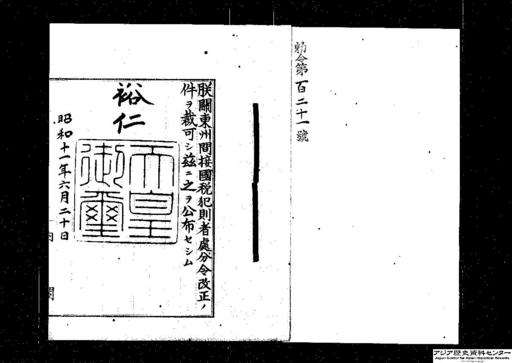 勅令第百二十一號
朕關東州間接國税犯則者處分令改正ノ
件ヲ裁可シ茲ニ之ヲ公布セシム
裕仁
天皇御璽
昭和十一年六月二十日
内閣
アジア歴史資料センター
Japan Center for Asian Historical Records